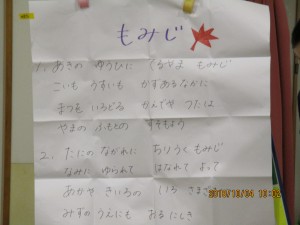 もみじ
1. あきの ゆうひに てるやま もみじ
こいも うすいも かずあるなかに
まつを いろどる かえでや つたは
やまの ふもとの すそもよう
2. たにの ながれに ちりうく もみじ
なみに ゆられて はなれて よって
あかや きいろの いろ さまざ
みずの うえにも おる にしき